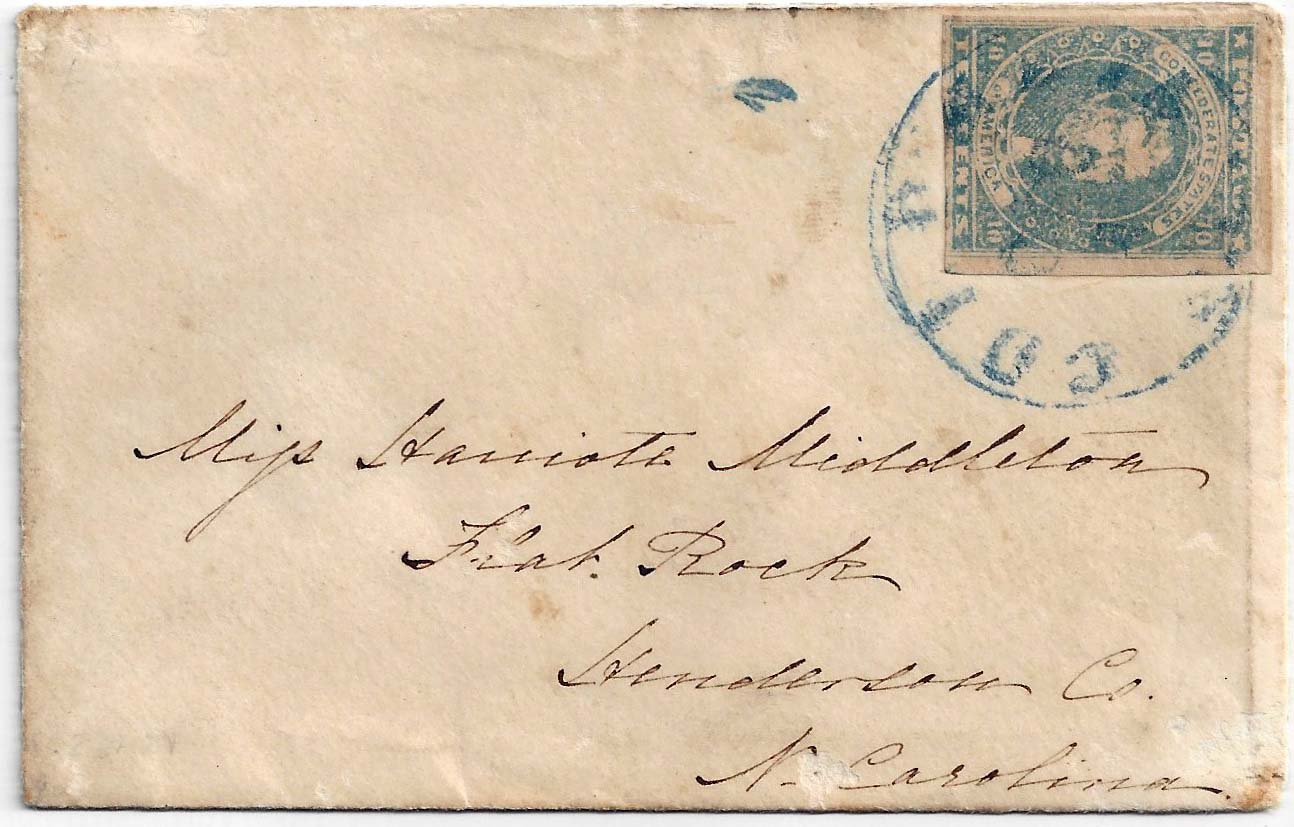 POSTAGE
10 10
CONFEDERATE STATES
AMERICA
TEN CENTS
10 10
Miss Harriote Middleton
Flat Rock
Henderson Co.
N. Carolina.